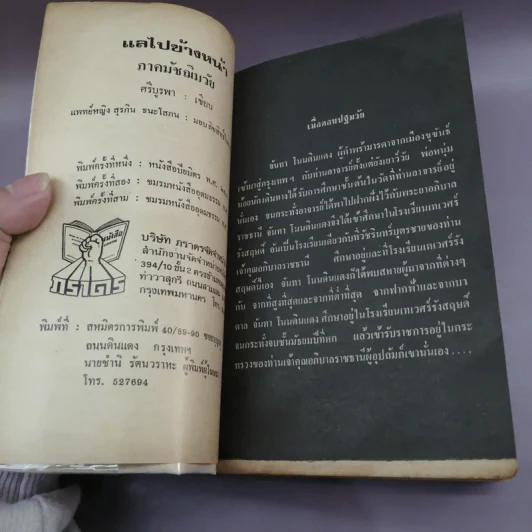 แลไปข้างหน้า
ภาคมัชฌิมวัย
ศรีบูรพา : เขียน
แพทย์หญิง สุรภิน ธนะโสภน : มอบลิขสิทธิ์
พิมพ์ครั้งที่หนึ่ง : หนังสือปิยมิตร พ.ศ.
พิมพ์ครั้งที่สอง : ชมรมหนังสืออุดมธรรม
พิมพ์ครั้งที่สาม : ชมรมหนังสืออุดมธรรม
หนังสือ
ภราดร
บริษัท ภราดรจัดจำหน่าย
สำนักงานจัดจำหน่าย
394/10 ชั้น 2 ตรงข้าม
ท่าวาสุกรี ถนนสามเสน
กรุงเทพมหานคร โทร.
พิมพ์ที่ : สหมิตรการพิมพ์ 40/89-90
ถนนดินแดง กรุงเทพฯ
นายชำนิ รัตนวราหะ ผู้พิมพ์ผู้โฆษณา
โทร. 527694
เมื่อตอนปฐมวัย
จันทา โนนดินแดง ผู้กำพร้ามารดาจากเมืองขุขันธ์
เข้ามาสู่กรุงเทพฯ กับท่านอาจารย์ตั้งแต่ยังเยาว์วัย พ่อหนุ่ม
น้อยน้องดินดานได้รับการศึกษาขั้นต้นในวัดที่ท่านอาจารย์อยู่
นั่นเอง จนกระทั่งอาจารย์ได้พาไปฝากฝังไว้กับพระยาอภิบาล
ราชธานี จันทา โนนดินแดงจึงได้เข้าศึกษาในโรงเรียนเทเวศร์
รังสฤษดิ์ อันเป็นโรงเรียนเดียวกับที่วัชรินทร์บุตรชายของท่าน
เจ้าคุณอภิบาลราชธานี ศึกษาอยู่และที่โรงเรียนเทเวศร์รัง
สฤษดิ์นี้เอง จันทา โนนดินแดงก็ได้พบสหายผู้มาจากที่ต่างๆ
กัน จากที่สูงที่สุดและจากที่ต่ำที่สุด จากฟากฟ้าและจากบา
ดาล จันทา โนนดินแดง ศึกษาอยู่ในโรงเรียนเทเวศร์รังสฤษดิ์
จนกระทั่งจบชั้นมัธยมปีที่หก แล้วเข้ารับราชการอยู่ในกระ
ทรวงของท่านเจ้าคุณอภิบาลราชธานีผู้อุปถัมภ์เขานั่นเอง....